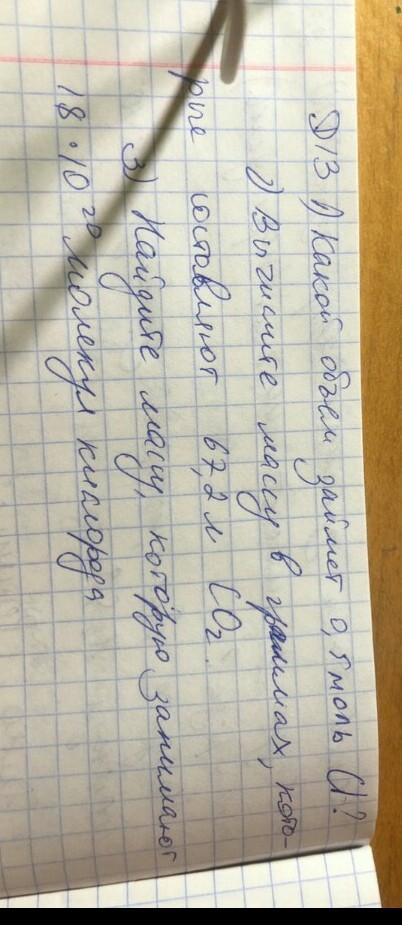 Д/З 1) Какой объем займет 0,5 моль Cl?
2) Вычислите массу в граммах, кото-
рые составляют 67,2 л CO2.
3) Найдите массу, которую занимают
18 · 10²⁰ молекул кислорода